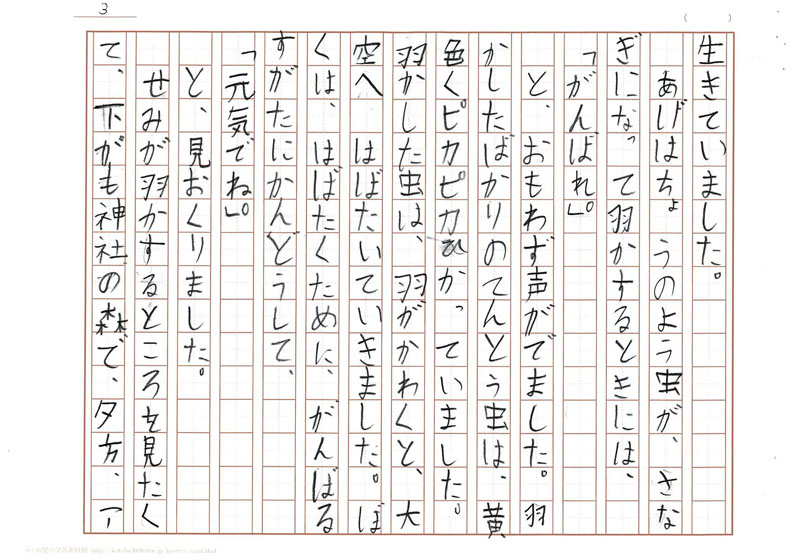 3
生きていました。
あげはちょうのよう虫が、さな
ぎになって羽かするときには、
「がんばれ」。
と、おもわず声がでました。羽
かしたばかりのてんとう虫は、黄
色くピカピカひかっていました。
羽かした虫は、羽がかわくと、大
空へはばたいていきました。ぼ
くは、はばたくために、がんばる
すがたにかんどうして、
「元気でね」。
と、見おくりました。
せみが羽かするところを見たく
て、下がも神社の森で、夕方、ア